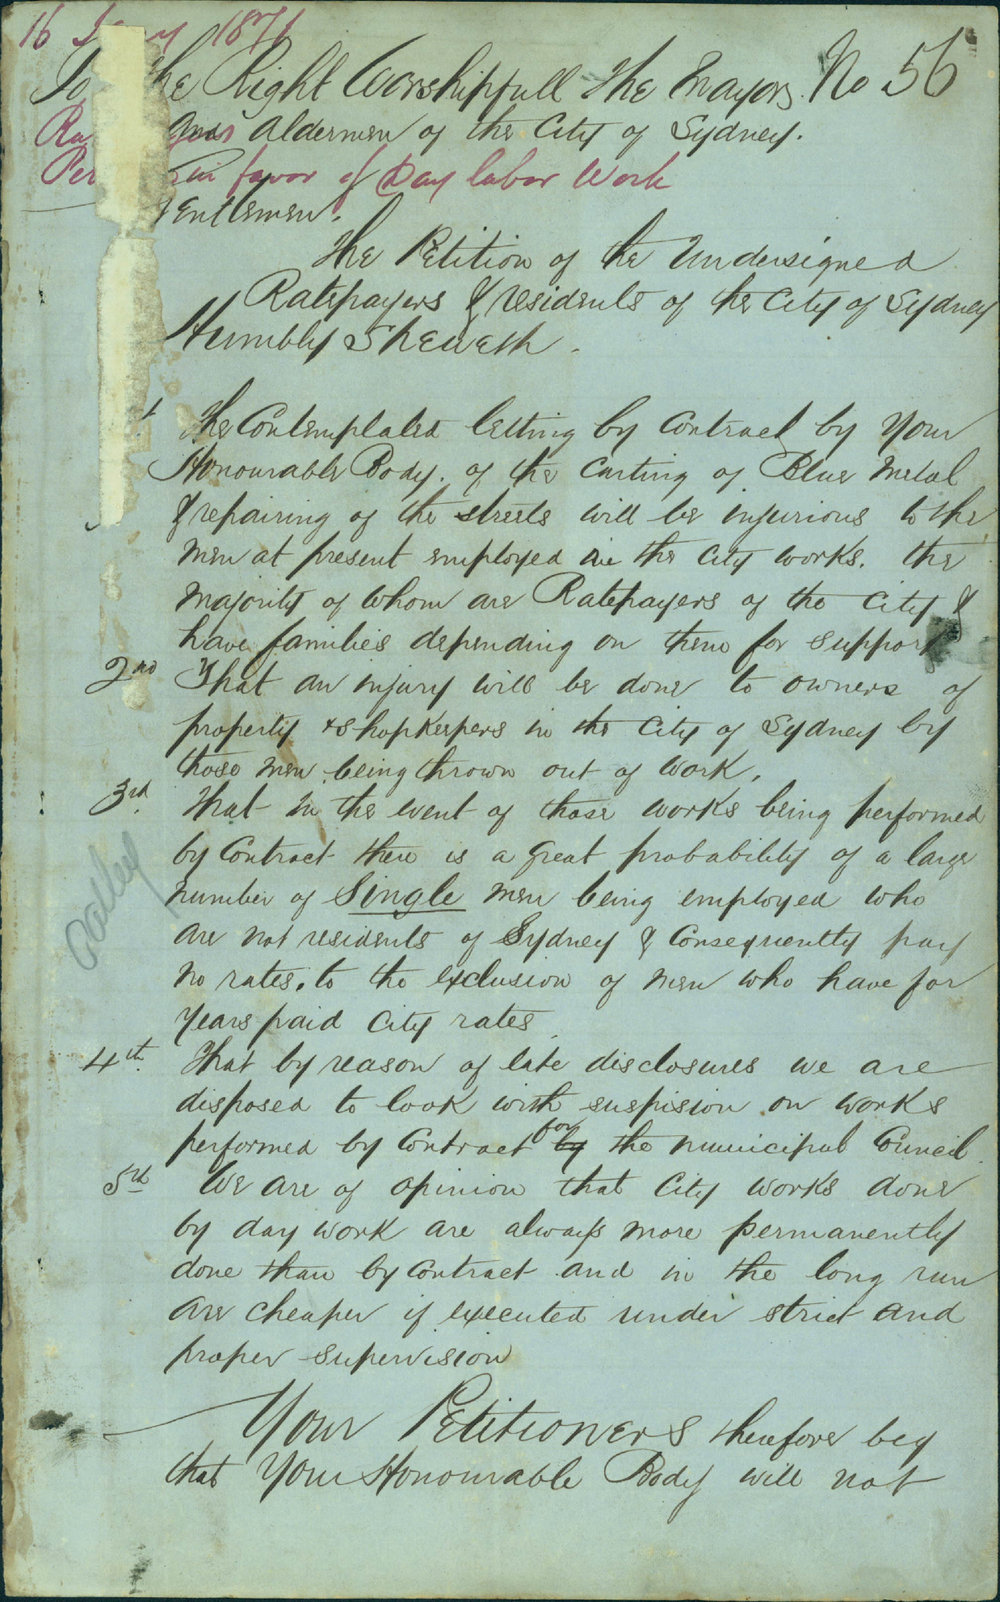 16 1871
To the Right Worshipfull The Mayor. No 56
and Aldermen of the City of Sydney.
in favor of Day labor Work
Gentlemen.
The Petition of the Undersigned
Ratepayers & residents of the City of Sydney
Humbly Sheweth.
1 The Contemplated letting by Contract by Your
Honourable Body. of the Carting of Blue Metal
& repairing of the streets will be injurious to the
men at present employed in the City works. the
majority of whom are Ratepayers of the City &
have families depending on them for support
2nd That an injury will be done to owners of
property & Shopkeepers in the City of Sydney by
those men being thrown out of work.
3rd That in the event of those works being performed
by Contract there is a great probability of a large
number of Single men being employed who
are not residents of Sydney & Consequently pay
no rates. to the exclusion of men who have for
years paid City rates
4th That by reason of late disclosures we are
disposed to look with suspision on works
performed by Contract for by the Municipal Council.
5th We are of opinion that City works done
by day work are always more permanently
done than by Contract and in the long run
are cheaper if executed under strict and
proper supervision
Your Petitioners therefore beg
that Your Honourable Body will not